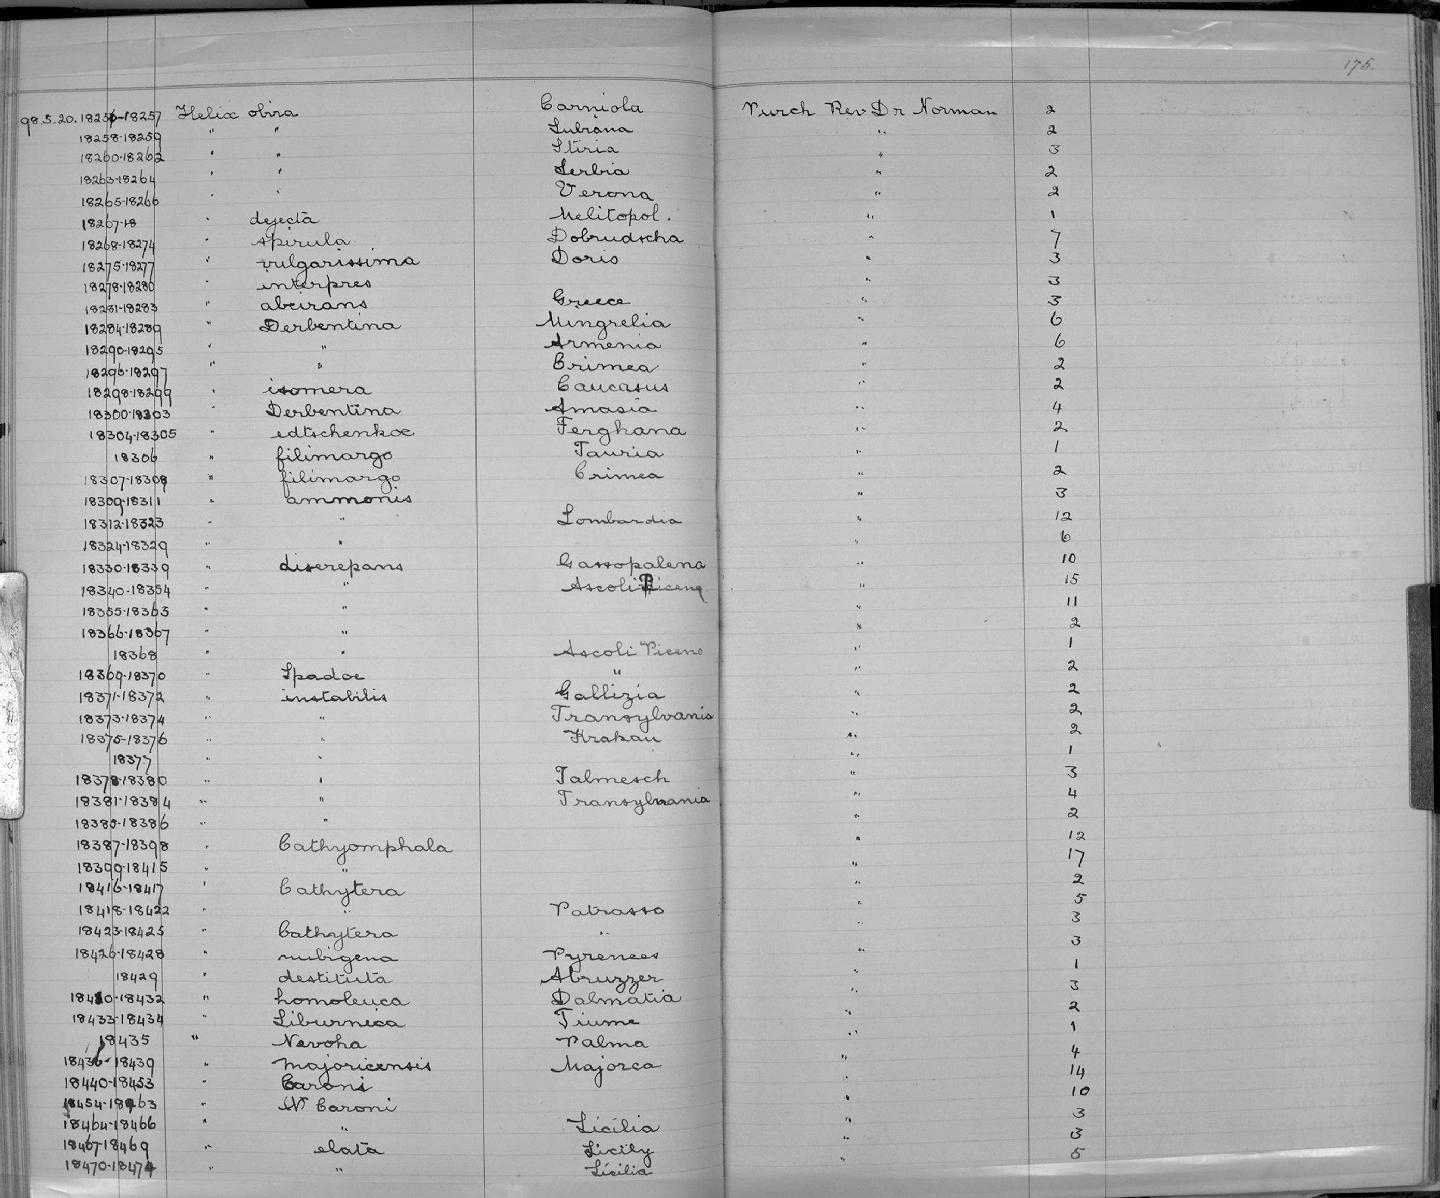 175.
98.5.20.18256-18257 Helix obvia Carniola Purch Rev Dr Norman 2
18258-18259 " " Lubiana " 2
18260-18262 " " Stiria " 3
18263-18264 " " Serbia " 2
18265-18266 " " Verona " 2
18267-18 " dejecta Melitopol. " 1
18268-18274 " spirula Dobrudscha " 7
18275-18277 " vulgarissima Doris " 3
18278-18280 " interpres " 3
18281-18283 " abeirans Greece " 3
18284-18289 " Derbentina Mingrelia " 6
18290-18295 " " Armenia " 6
18296-18297 " " Crimea " 2
18298-18299 " isomera Caucasus " 2
18300-18303 " Derbentina Amasia " 4
18304-18305 " edtschenkoe Ferghana " 2
18306 " filimargo Tauria " 1
18307-18308 " filimargo Crimea " 2
18309-18311 " ammonis " 3
18312-18323 " " Lombardia " 12
18324-18329 " " " 6
18330-18339 " discrepans Gassopalena " 10
18340-18354 " " Ascoli Piceno " 15
18355-18365 " " " 11
18366-18367 " " " 2
18368 " " Ascoli Piceno " 1
18369-18370 " Spadoe " " 2
18371-18372 " instabilis Gallizia " 2
18373-18374 " " Transylvania " 2
18375-18376 " " Krakau " 2
18377 " " " 1
18378-18380 " " Talmesch " 3
18381-18384 " " Transylvania " 4
18385-18386 " " " 2
18387-18398 " Cathyomphala " 12
18399-18415 " " " 17
18416-18417 " Cathytera " 2
18418-18422 " " Patrasso " 5
18423-18425 " Cathytera " " 3
18426-18428 " nubigena Pyrenees " 3
18429 " destituta Abruzzer " 1
18430-18432 " homoleuca Dalmatia " 3
18433-18434 " Liburnica Fiume " 2
18435 " Nevoha Palma " 1
18436-18439 " majoricensis Majorca " 4
18440-18453 " Caroni " 14
18454-18463 " Caroni " 10
18464-18466 " " Sicilia " 3
18467-18469 " elata Sicily " 3
18470-18474 " " Sicilia " 5